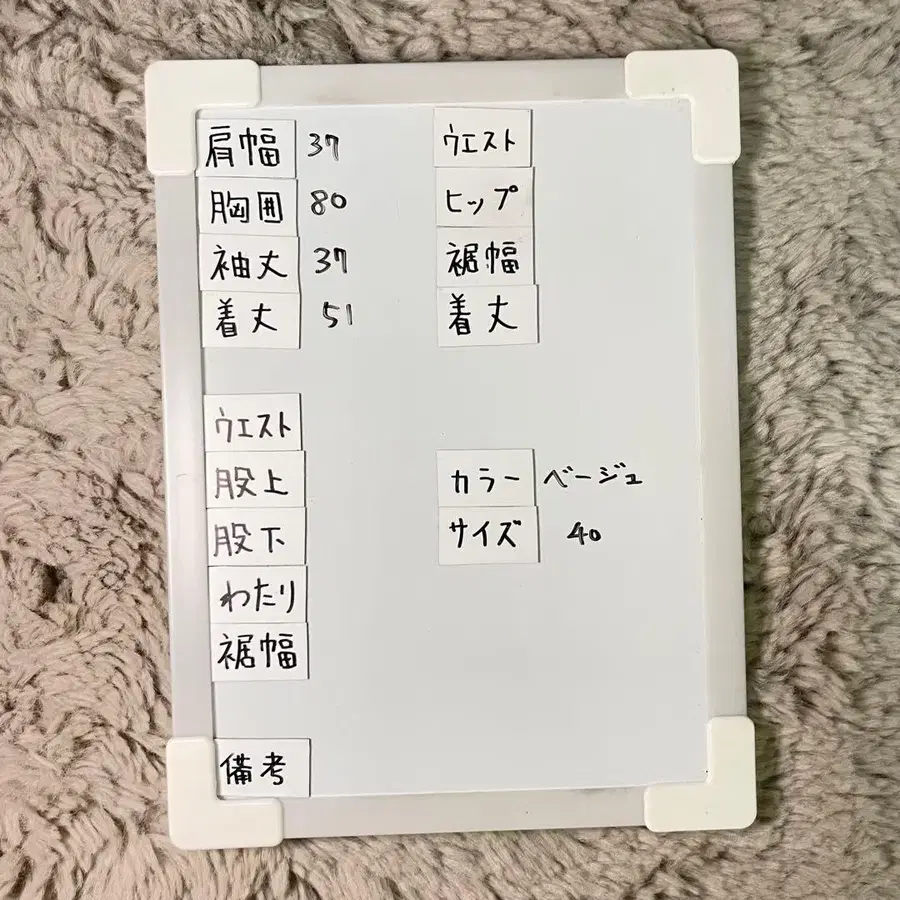 肩幅 37
胸囲 80
袖丈 37
着丈 51
ウエスト
ヒップ
裾幅
着丈
ウエスト
股上
股下
わたり
裾幅
カラー ベージュ
サイズ 40
備考